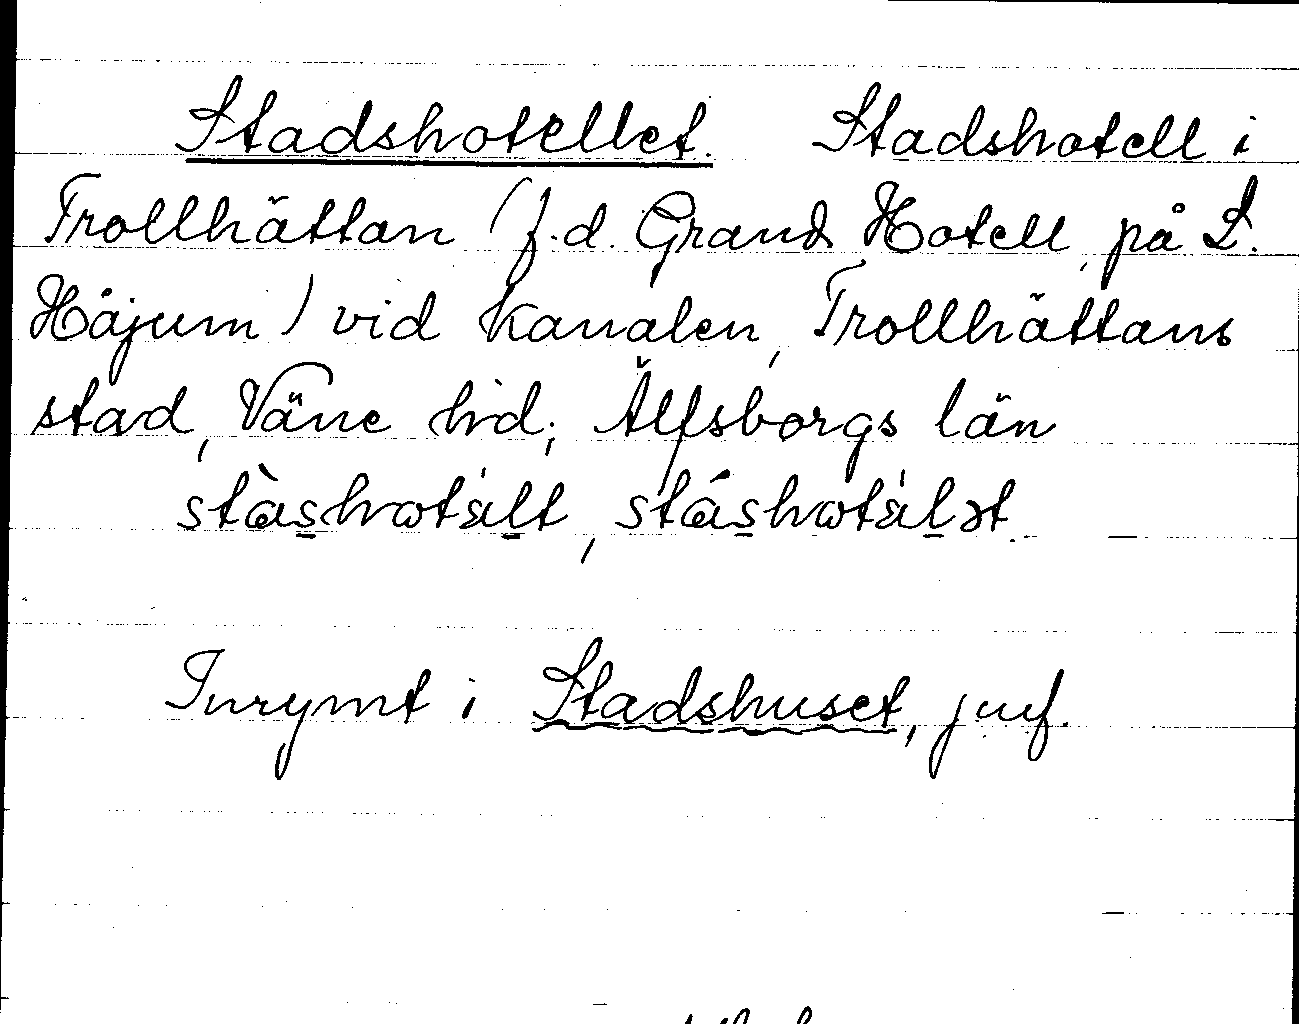 Stadshotellet. Stadshotell i
Trollhättan (f.d. Grand Hotell på L.
Håjum) vid kanalen, Trollhättans
stad, Väne hd; Älfsborgs län
Inrymt i Stadshuset, juf.